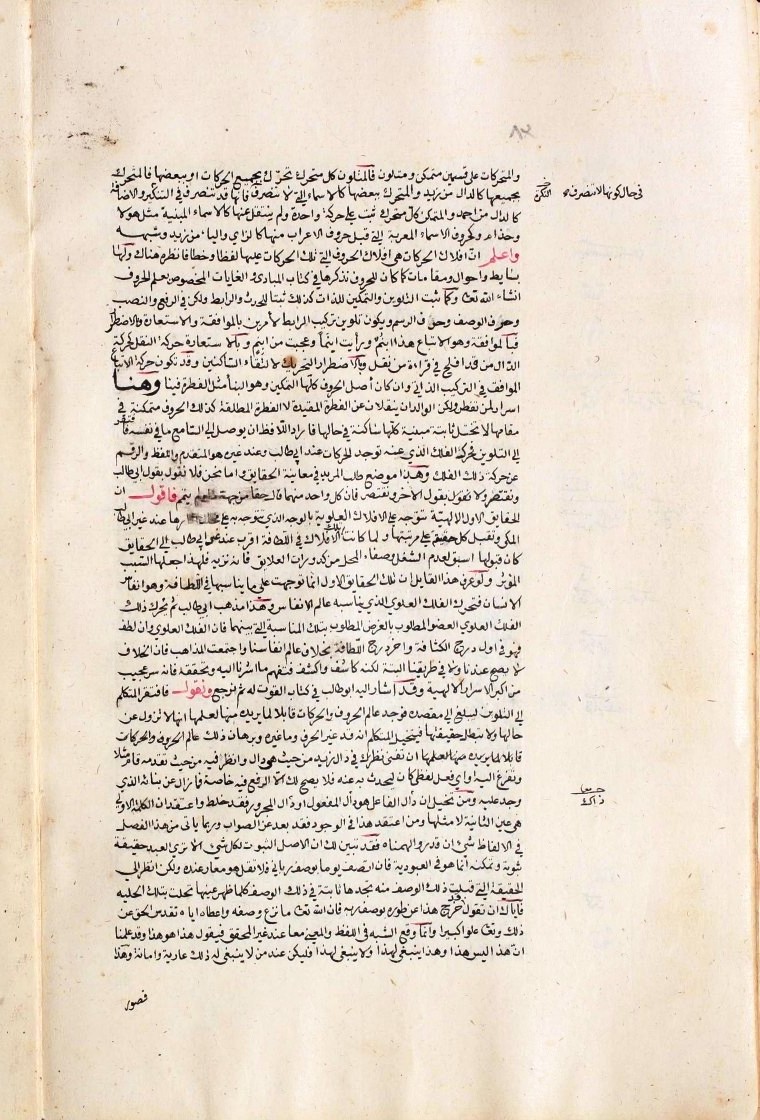 ٨٢
والمتحركات على قسمين متمكن ومتلون فالمتلون كل متحرك تحرك بجميع الحركات او ببعضها فالمتحرك
بجميعها كالدال من زيد والمتحرك ببعضها كالاسماء التي لا تنصرف فانها قد تنصرف في التنكير والاضافة
في حال كونها لا تنصرف
كالدال من احمد والمتمكن كل متحرك ثبت على حركة واحدة ولم ينتقل عنها كالاسماء المبنية مثل هولا
وحذام وكحروف الاسماء المعربة التي قبل حروف الاعراب منها كالزاي والياء من زيد وشبهه
واعلم ان افلاك الحركات هي افلاك الحروف التي تلك الحركات عليها لفظا وخطا فانظره هناك ولها
بسايط واحوال ومقامات كما كان للحروف نذكرها في كتاب المبادي والغايات المخصوص بعلم الحروف
انشاء الله تعالى وكما ثبت التلوين والتمكين للذات كذلك ثبتا للحدث والرابط ولكن في الرفع والنصب
وحذف الوصف وحذف الرسم ويكون تلوين تركيب الرابط لامرين بالموافقة والاستعارة والاضطرار
فبالموافقة وهو الاتباع هذا ابنم ورايت ابنما وعجبت من ابنم وبالاستعارة حركة النقل كحركة
الدال من قد افلح في قراءة من نقل وبالاضطرار التحريك لالتقاء الساكنين وقد تكون حركة الاتباع
الموافق في التركيب الذاتي وان كان أصل الحروف كلها التمكين وهو البنا مثل الفطرة فينا وهنا
اسرار لمن تفطن ولكن الوالدان ينقلان عن الفطرة المقيدة لا الفطرة المطلقة كذلك الحروف متمكنة في
مقامها لا تختل ثابتة مبنية كلها ساكنة في حالها فاراد اللافظ ان يوصل الى السامع ما في نفسه فافتقر
الى التلوين فحرك الفلك الذي عنه توجد الحركات عند ابي طالب وعند غيره هو المتقدم واللفظ والرقم
عن حركة ذلك الفلك وهذا موضع طلب المريد في معاينة الحقايق واما نحن فلا نقول بقول ابي طالب
ونقتصر ولا نقول بقول الاخر ونقتصر فان كل واحد منهما قال حقا من جهة يتمم فاقول ان
الحقايق الاول الالهية تتوجه على الافلاك العلوية بالوجه الذي تتوجه به على عند غير ابي طالب
المكي وتقبل كل حقيقة على مرتبتها ولما كانت تلك الافلاك في اللطافة اقرب عند غير ابي طالب الى الحقايق
كان قبولها اسبق لعدم الشغل وصفاء المحل من كدورات العلايق فانه نزيه فلهذا جعلها السبب
المؤثر ولو عرف هذا القايل ان تلك الحقايق الاول انما توجهت على ما يناسبها في اللطافة وهو انفاس
الانسان فتحرك الفلك العلوي الذي يناسبه عالم الانفاس وهذا مذهب ابي طالب ثم يحرك ذلك
الفلك العلوي العضو المطلوب بالغرض المطلوب بتلك المناسبة التي بينهما فان الفلك العلوي وان لطف
فهو في اول درج الكثافة واخر درج اللطافة بخلاف عالم انفاسنا واجتمعت المذاهب فان الخلاف
لا يصح عندنا ولا في طريقنا البتة لكنه كاشف واكشف فتفهم ما اشرنا اليه وتحققه فانه سر عجيب
من اكبر الاسرار الالهية وقد اشار اليه ابو طالب في كتاب القوت له ثم نرجع ونقول فافتقر المتكلم
الى التلوين ليبلغ الى مقصده فوجد عالم الحروف والحركات قابلا لما يريده منها لعلمها انها لا تزول عن
حالها ولا تبطل حقيقتها فيتخيل المتكلم انه قد غير الحرف وما غيره وبرهان ذلك عالم الحروف والحركات
قابلا لما يريده منها لعلمها ان تفنى نظرك في دال زيد من حيث هو دال وانظر فيه من حيث تقدمه قام مثلا
وتفرغ اليه او اي فعل لفظي كان ليحدث به عنه فلا يصح لك الا الرفع فيه خاصة فما زال عن بنائه الذي
وجد عليه ومن تخيل ان دال الفاعل هو دال المفعول او دال المجرور فقد خلط واعتقد ان الكلمة الاولى
هي عين الثانية لا مثلها ومن اعتقد هذا في الوجود فقد بعد عن الصواب وربما ياتي من هذا الفصل
في الالفاظ شئ ان قدر والهمناه فقد تبين لك ان الاصل الثبوت لكل شي الا ترى العبد حقيقة
ثبوته وتمكنه انما هو في العبودية فان اتصف يوما بوصف رباني فلا تقل هو معار عنده ولكن انظر الى
الحقيقة التي قبلت ذلك الوصف منه تجدها ثابتة في ذلك الوصف كلما ظهر عينها تحلت بتلك الحلية
فاياك ان تقول قد خرج هذا عن طوره بوصف ربه فان الله تعالى ما نزع وصفه واعطاه اياه تقدس الحق عن
ذلك وتعالى علوا كبيرا وانما وقع الشبه في اللفظ والمعنى معا عند غير المحقق فيقول هذا هو هذا وقد علمنا
ان هذا ليس هذا وهذا ينبغي لهذا ولا ينبغي لهذا فليكن عند من لا ينبغي له ذلك عارية وامانة وهذا
قصور